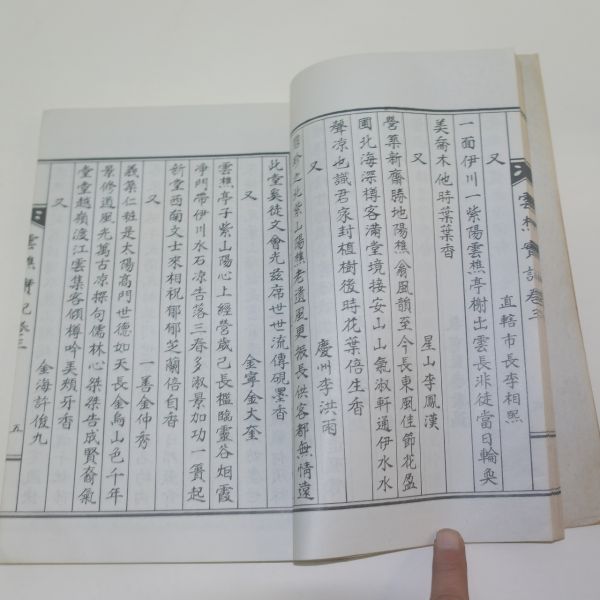 雲樵實記卷三
又　直轄市長李相熙
一面伊川一紫陽雲樵亭榭出雲長非徒當日輪奐
美喬木他時葉葉香
又　星山李鳳漢
營築新齋勝地陽樵翁風韻至今長東風佳節花盈
圃北海深樽客滿堂境接安山山氣淑軒通伊水水
聲凉也識君家封植樹後時花葉倍生香
又　慶州李洪雨
紫山陽樵老遺風更振長供客都無情遠
此堂奚徒文會光玆席世世流傳硯墨香
又　金寧金大奎
雲樵亭子紫山陽心上經營歲己長檻臨靈谷烟霞
淨門帶伊川水石凉告落三春多淑景加功一簣起
新堂西南文士來相祝郁郁芝蘭倍自香
又　一善金仲秀
義築仁粧是太陽高門世德如天長金烏山色千年
景修道風光萬古凉探句儒林心桀桀告成賢裔氣
堂堂越嶺渡江雲集客傾樽吟美頰牙香
又　金海許俊九
雲樵實記卷三　五